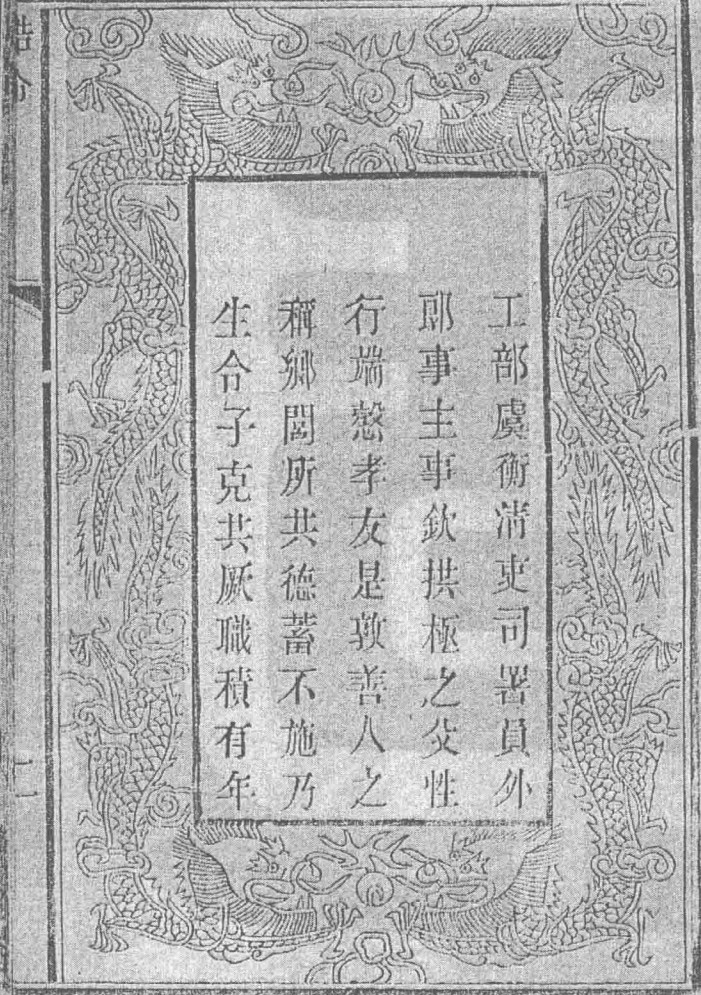 工部虞衡清吏司署員外
郎事主事欽拱極之父性
行端慤孝友是敦善人之
稱鄉閭所共德蓄不施乃
生令子克共厥職積有年
誥命